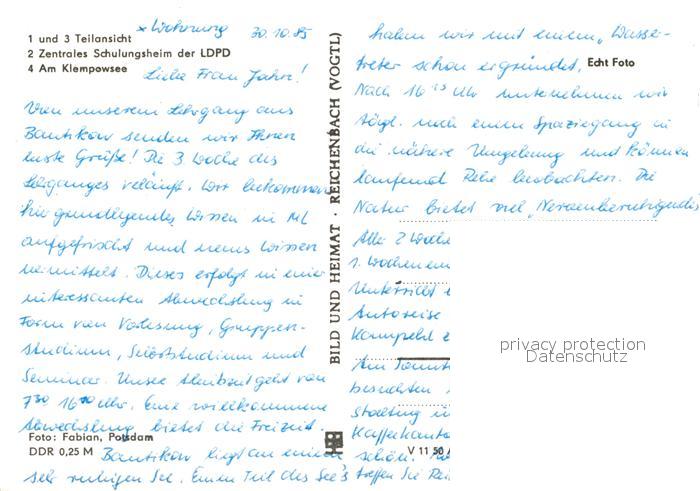 x Wohnung 30.10.85
1 und 3 Teilansicht
2 Zentrales Schulungsheim der LDPD
4 Am Klempowsee
Liebe Frau Jahn!
Von unserem Lehrgang aus
Bantikow senden wir Ihnen
liebe Grüße! Die 3. Woche des
Lehrganges verläuft. Wir bekommen
hier grundlegendes Wissen in ML
aufgefrischt und neues Wissen
vermittelt. Dieses erfolgt in einer
interessanten Abwechslung in
Form von Vorlesung, Gruppen-
studium, Selbststudium und
Seminar. Unsere Arbeitszeit geht von
7³⁰ 16⁰⁰ Uhr. Eine willkommene
Abwechslung bietet die Freizeit.
Foto: Fabian, Potsdam
DDR 0,25 M
Bantikow liegt an einem
sehr ruhigen See. Einen Teil des See's
BILD UND HEIMAT · REICHENBACH (VOGTL)
haben wir mit einem „Wasser-
treter schon ergründet.
Echt Foto
Nach 16 Uhr unternehmen wir
tägl. noch einen Spaziergang in
die nähere Umgebung und können
laufend Rehe beobachten. Die
Natur bietet viel „Nervenberuhigendes
Alle 2 Woche
1. Wochenen
Unterricht
Autoreise
Komplekt
Am Sonnt
besuchten
Stadting in
Kaffeekanta
schön.
treffen Sie Rei
V 11 50
privacy protection
Datenschutz